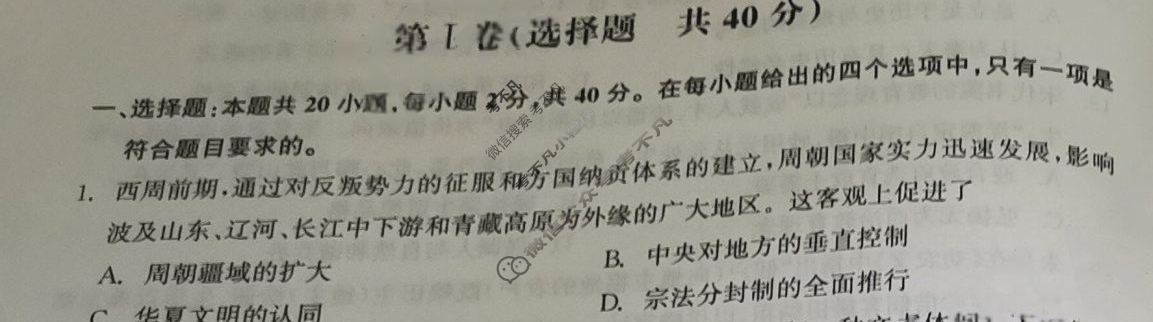 第Ⅰ卷(选择题 共40分)
一、选择题:本题共20小题,每小题2分,共40分。在每小题给出的四个选项中,只有一项是
符合题目要求的。
1. 西周前期,通过对反叛势力的征服和方国纳贡体系的建立,周朝国家实力迅速发展,影响
波及山东、辽河、长江中下游和青藏高原为外缘的广大地区。这客观上促进了
A. 周朝疆域的扩大
B. 中央对地方的垂直控制
C. 华夏文明的认同
D. 宗法分封制的全面推行